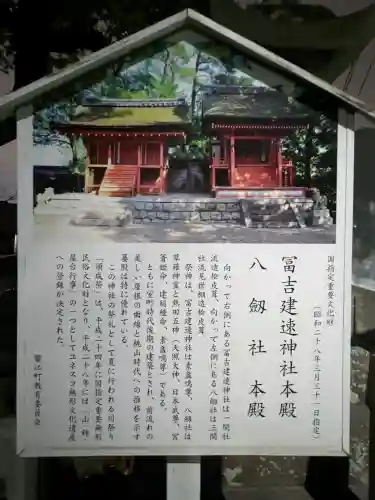 国指定重要文化財
(昭和二十八年三月三十一日指定)
冨吉建速神社本殿
八劔社本殿
向かって右側にある冨吉建速神社は一間社
流造桧皮葺、向かって左側にある八劔社は三間
社流見世棚造桧皮葺。
祭神は、冨吉建速神社は素盞嗚尊、八劔社は
草薙神霊と熱田五神(天照大神、日本武尊、宮
簀媛命、建稲種命、素盞嗚尊)である。
ともに室町時代後期の建築とされ、前流れの
美しい屋根の曲線と桃山時代への推移を示す
蟇股は特に優れている。
この神社の祭礼として夏に行われる川祭り
「須成祭」は、平成二十四年に国指定重要無形
民俗文化財となり、平成二十八年には「山・鉾・
屋台行事」の一つとしてユネスコ無形文化遺産
への登録が決定された。
蟹江町教育委員会